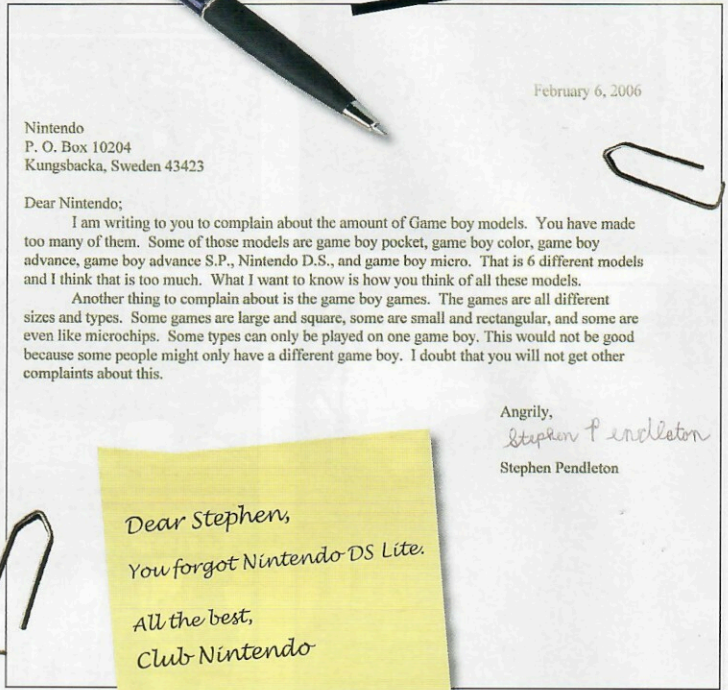 February 6, 2006
Nintendo
P. O. Box 10204
Kungsbacka, Sweden 43423
Dear Nintendo;
I am writing to you to complain about the amount of Game boy models. You have made
too many of them. Some of those models are game boy pocket, game boy color, game boy
advance, game boy advance S.P., Nintendo D.S., and game boy micro. That is 6 different models
and I think that is too much. What I want to know is how you think of all these models.
Another thing to complain about is the game boy games. The games are all different
sizes and types. Some games are large and square, some are small and rectangular, and some are
even like microchips. Some types can only be played on one game boy. This would not be good
because some people might only have a different game boy. I doubt that you will not get other
complaints about this.
Angrily,
Stephen Pendleton
Stephen Pendleton
Dear Stephen,
You forgot Nintendo DS Lite.
All the best,
Club Nintendo